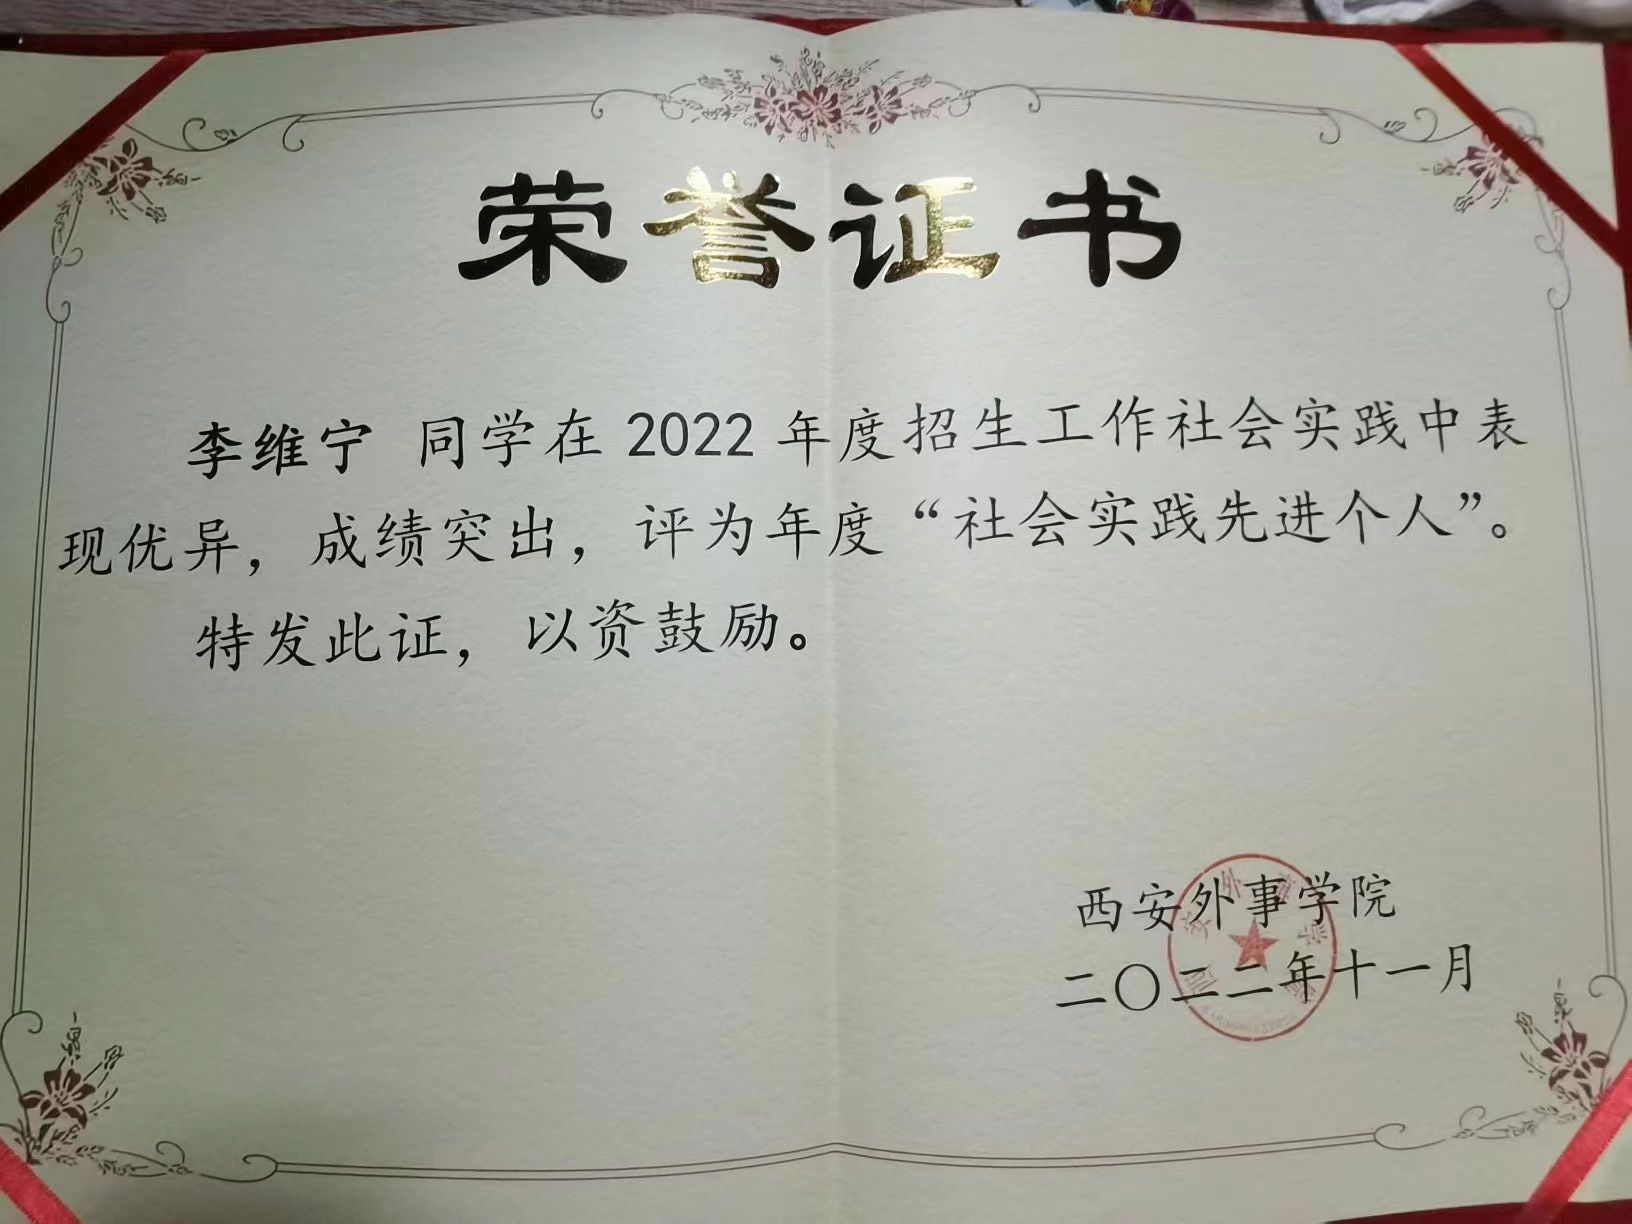 荣誉证书
李维宁 同学在 2022 年度招生工作社会实践中表
现优异，成绩突出，评为年度“社会实践先进个人”。
特发此证，以资鼓励。
西安外事学院
二〇二二年十一月